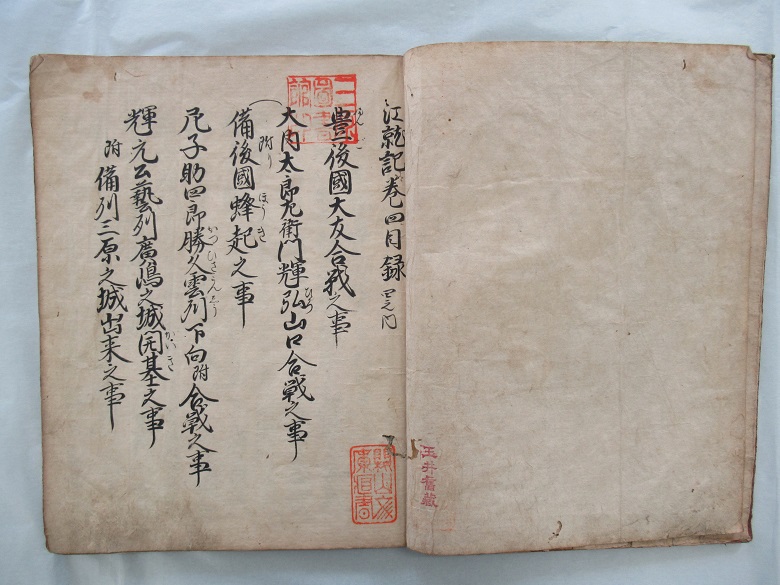 江就記巻四目録
豊後國大友合戦之事
大内太郎左衛門輝弘山口合戦之事
附り
備後國蜂起之事
ほうき
尼子助四郎勝久雲州下向附合戦之事
かつひさ
輝元公藝州廣嶋之城開基之事
かいき
附備州三原之城出来之事
玉井舊蔵